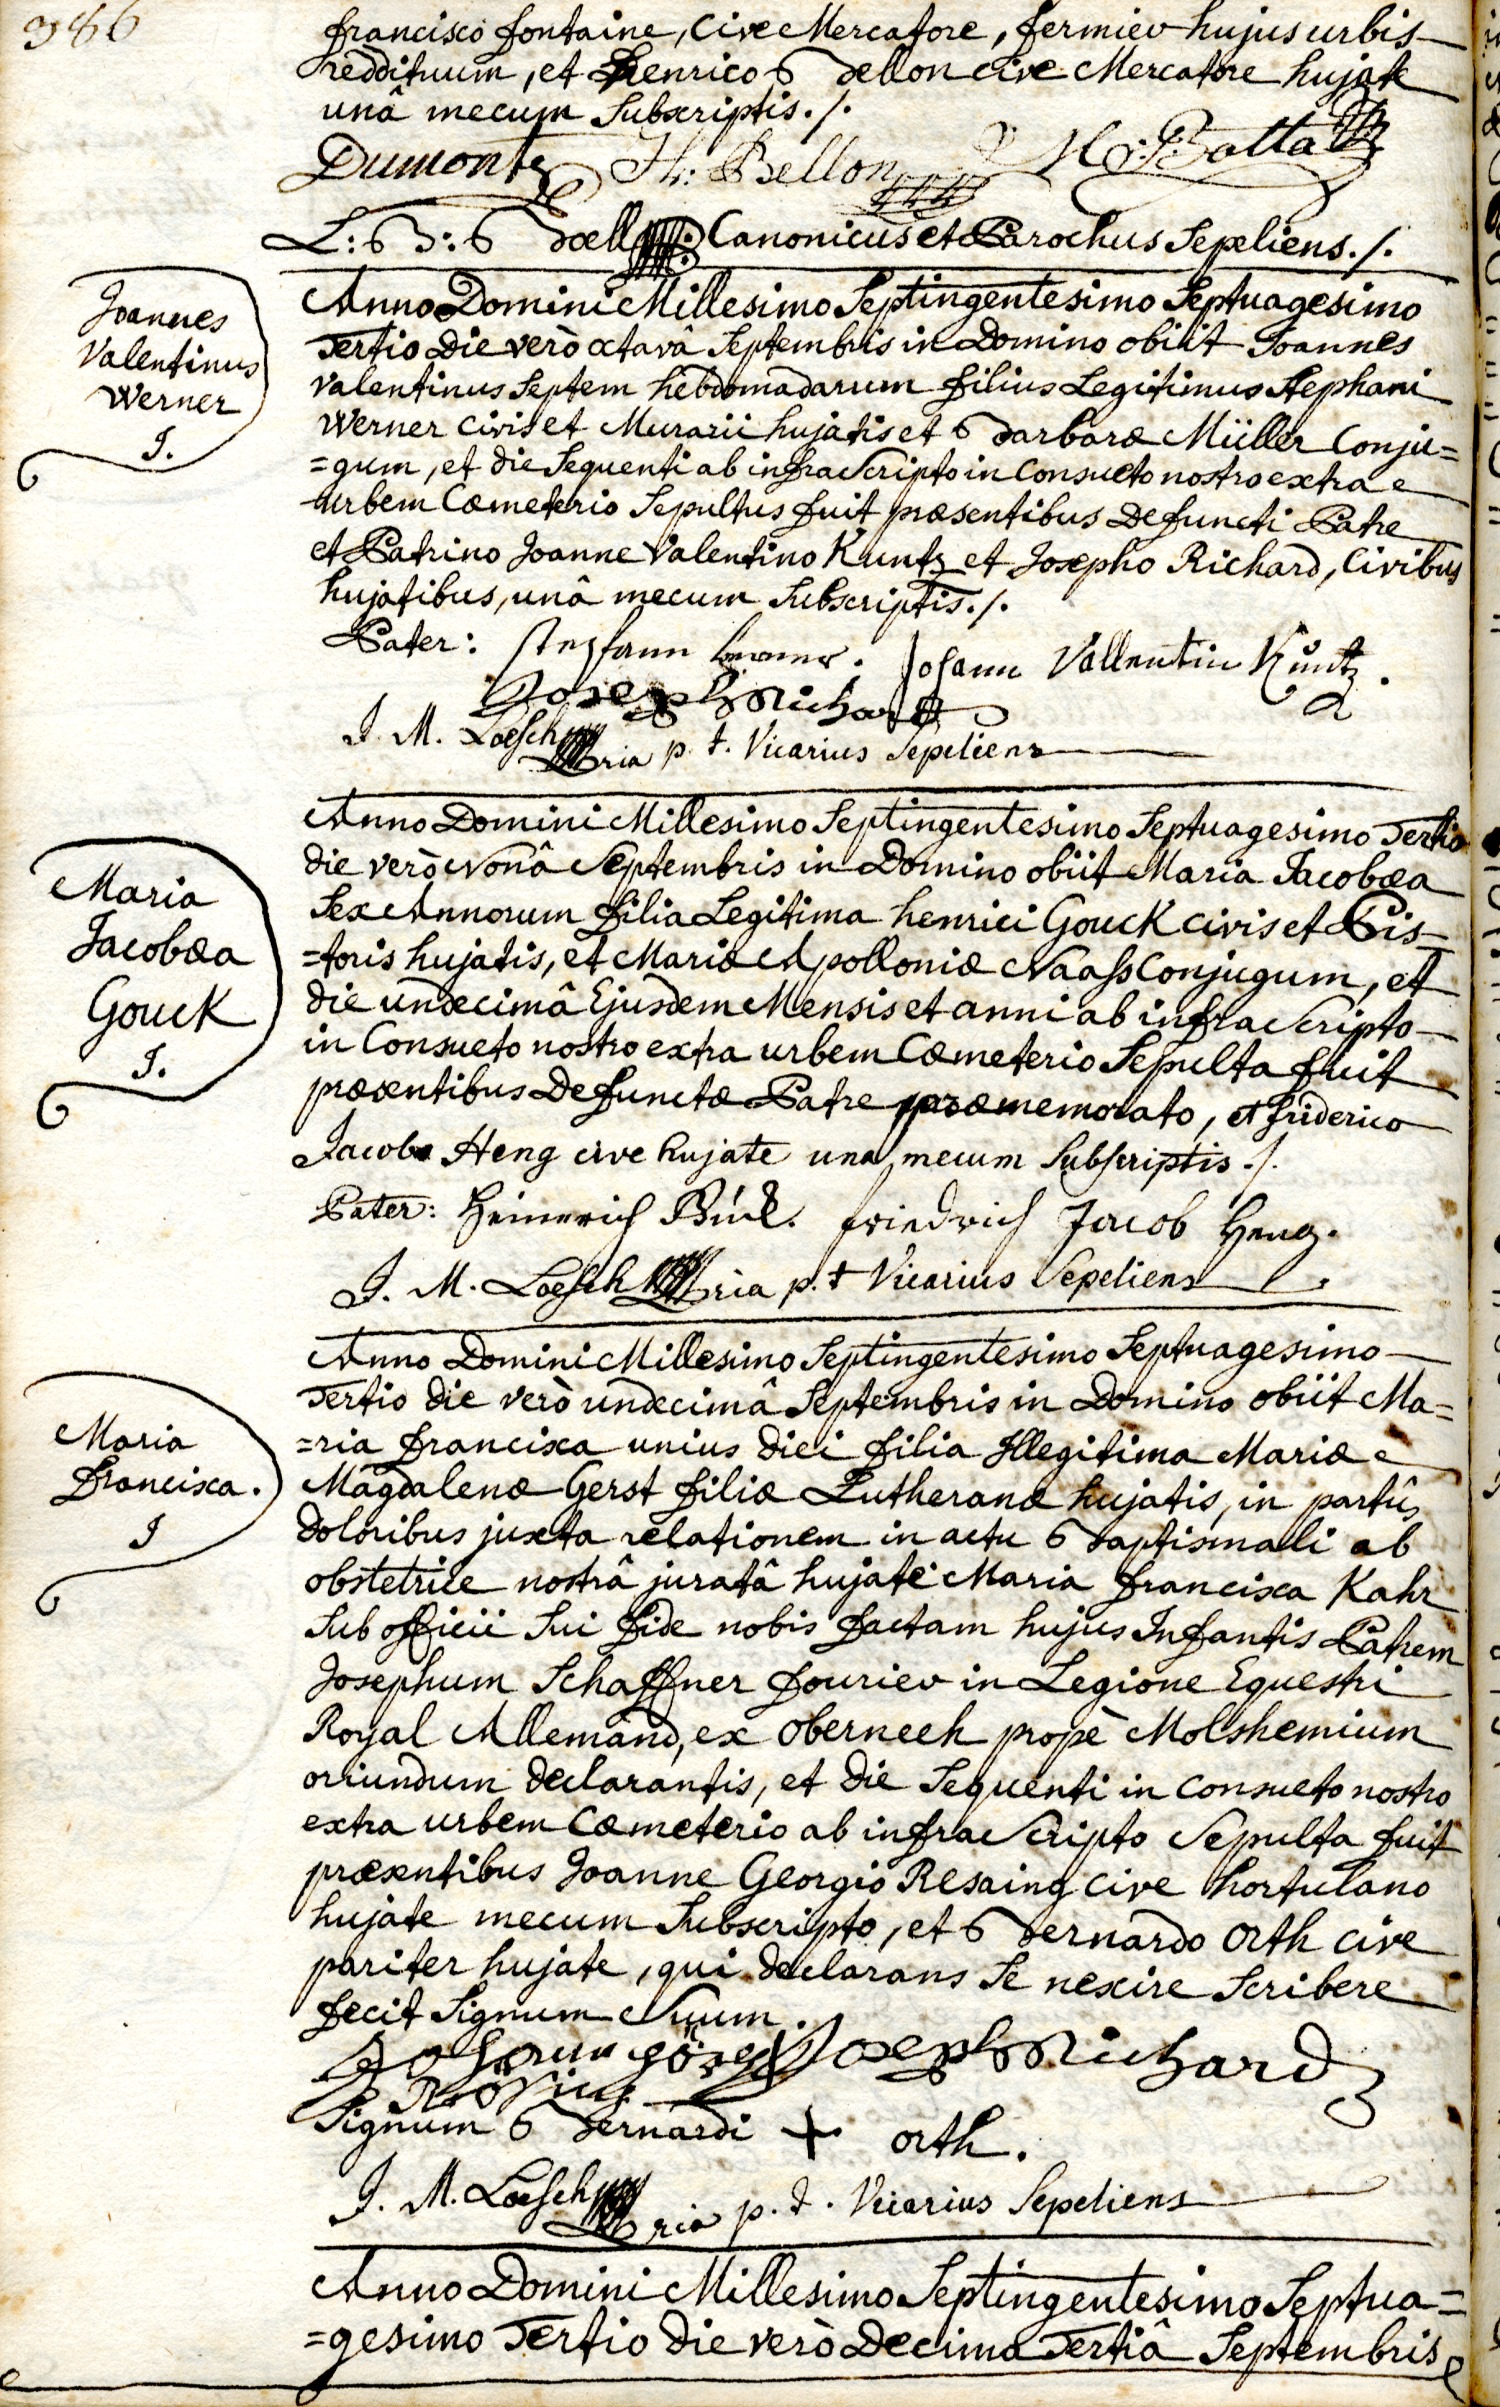 386
Francisco Fontaine, Cive Mercatore, Fermier hujus urbis
reddituum, et Henrico Bellon cive Mercatore hujate
unâ mecum Subscriptis ./.
Dumont H: Bellon
L: B: Boell Canonicus et Parochus Sepeliens ./.
Joannes
Valentinus
Werner
J.
Anno Domini Millesimo Septingentesimo Septuagesimo
Tertio Die verò octavâ Septembris in Domino obiit Joannes
Valentinus Septem hebdomadarum Filius Legitimus Stephani
Werner Civis et Murarii hujatis et Barbaræ Müller Conju=
=gum, et die Sequenti ab infra Scripto in Consueto nostro extra
urbem Cœmeterio Sepultus fuit præsentibus Defuncti Patre
et Patrino Joanne Valentino Kuntz et Josepho Richard, Civibus
hujatibus, unâ mecum Subscriptis ./.
Pater: Johann Vallentin Kuntz.
Joseph Richard
J. M. Loesch p. t. Vicarius Sepeliens
Maria
Jacobæa
Gouck
J.
Anno Domini Millesimo Septingentesimo Septuagesimo Tertio
die verò Nonâ Septembris in Domino obiit Maria Jacobæa
Sex Annorum Filia Legitima henrici Gouck civis et Pis=
=toris hujatis, et Mariæ Apolloniæ Naass Conjugum, et
die undecimâ Ejusdem Mensis et anni ab infra Scripto
in Consueto nostro extra urbem Cœmeterio Sepulta fuit
præsentibus Defunctæ Patre præmemorato, et friderico
Jacobo Heng cive hujate una mecum Subscriptis ./.
Pater: Heinrich friedrich Jacob Heng.
J. M. Loesch p. t Vicarius Sepeliens
Maria
Francisca.
J
Anno Domini Millesimo Septingentesimo Septuagesimo
Tertio die verò undecimâ Septembris in Domino obiit Ma=
=ria Francisca unius diei Filia Illegitima Mariæ
Magdalenæ Gerst Filiæ Lutheranæ hujatis, in partûs
doloribus juxta relationem in actu Baptismali ab
obstetrice nostrâ juratâ hujate Maria Francisca Kahr
Sub officii Sui Fide nobis Factam hujus Infantis Patrem
Josephum Schaffner Fourier in Legione Equestri
Royal Allemand, ex oberneeh propè Molshemium
oriundum declarantis, et die Sequenti in Consueto nostro
extra urbem Cœmeterio ab infra Scripto Sepulta fuit
præsentibus Joanne Georgio Resaing cive hortulano
hujate mecum Subscripto, et Bernardo Orth cive
pariter hujate, qui declarans Se nescire Scribere
fecit Signum Suum.
Joseph Richard
Signum Bernardi + orth.
J. M. Loesch p. t. Vicarius Sepeliens
Anno Domini Millesimo Septingentesimo Septua=
=gesimo Tertio die verò Decima Tertiâ Septembris